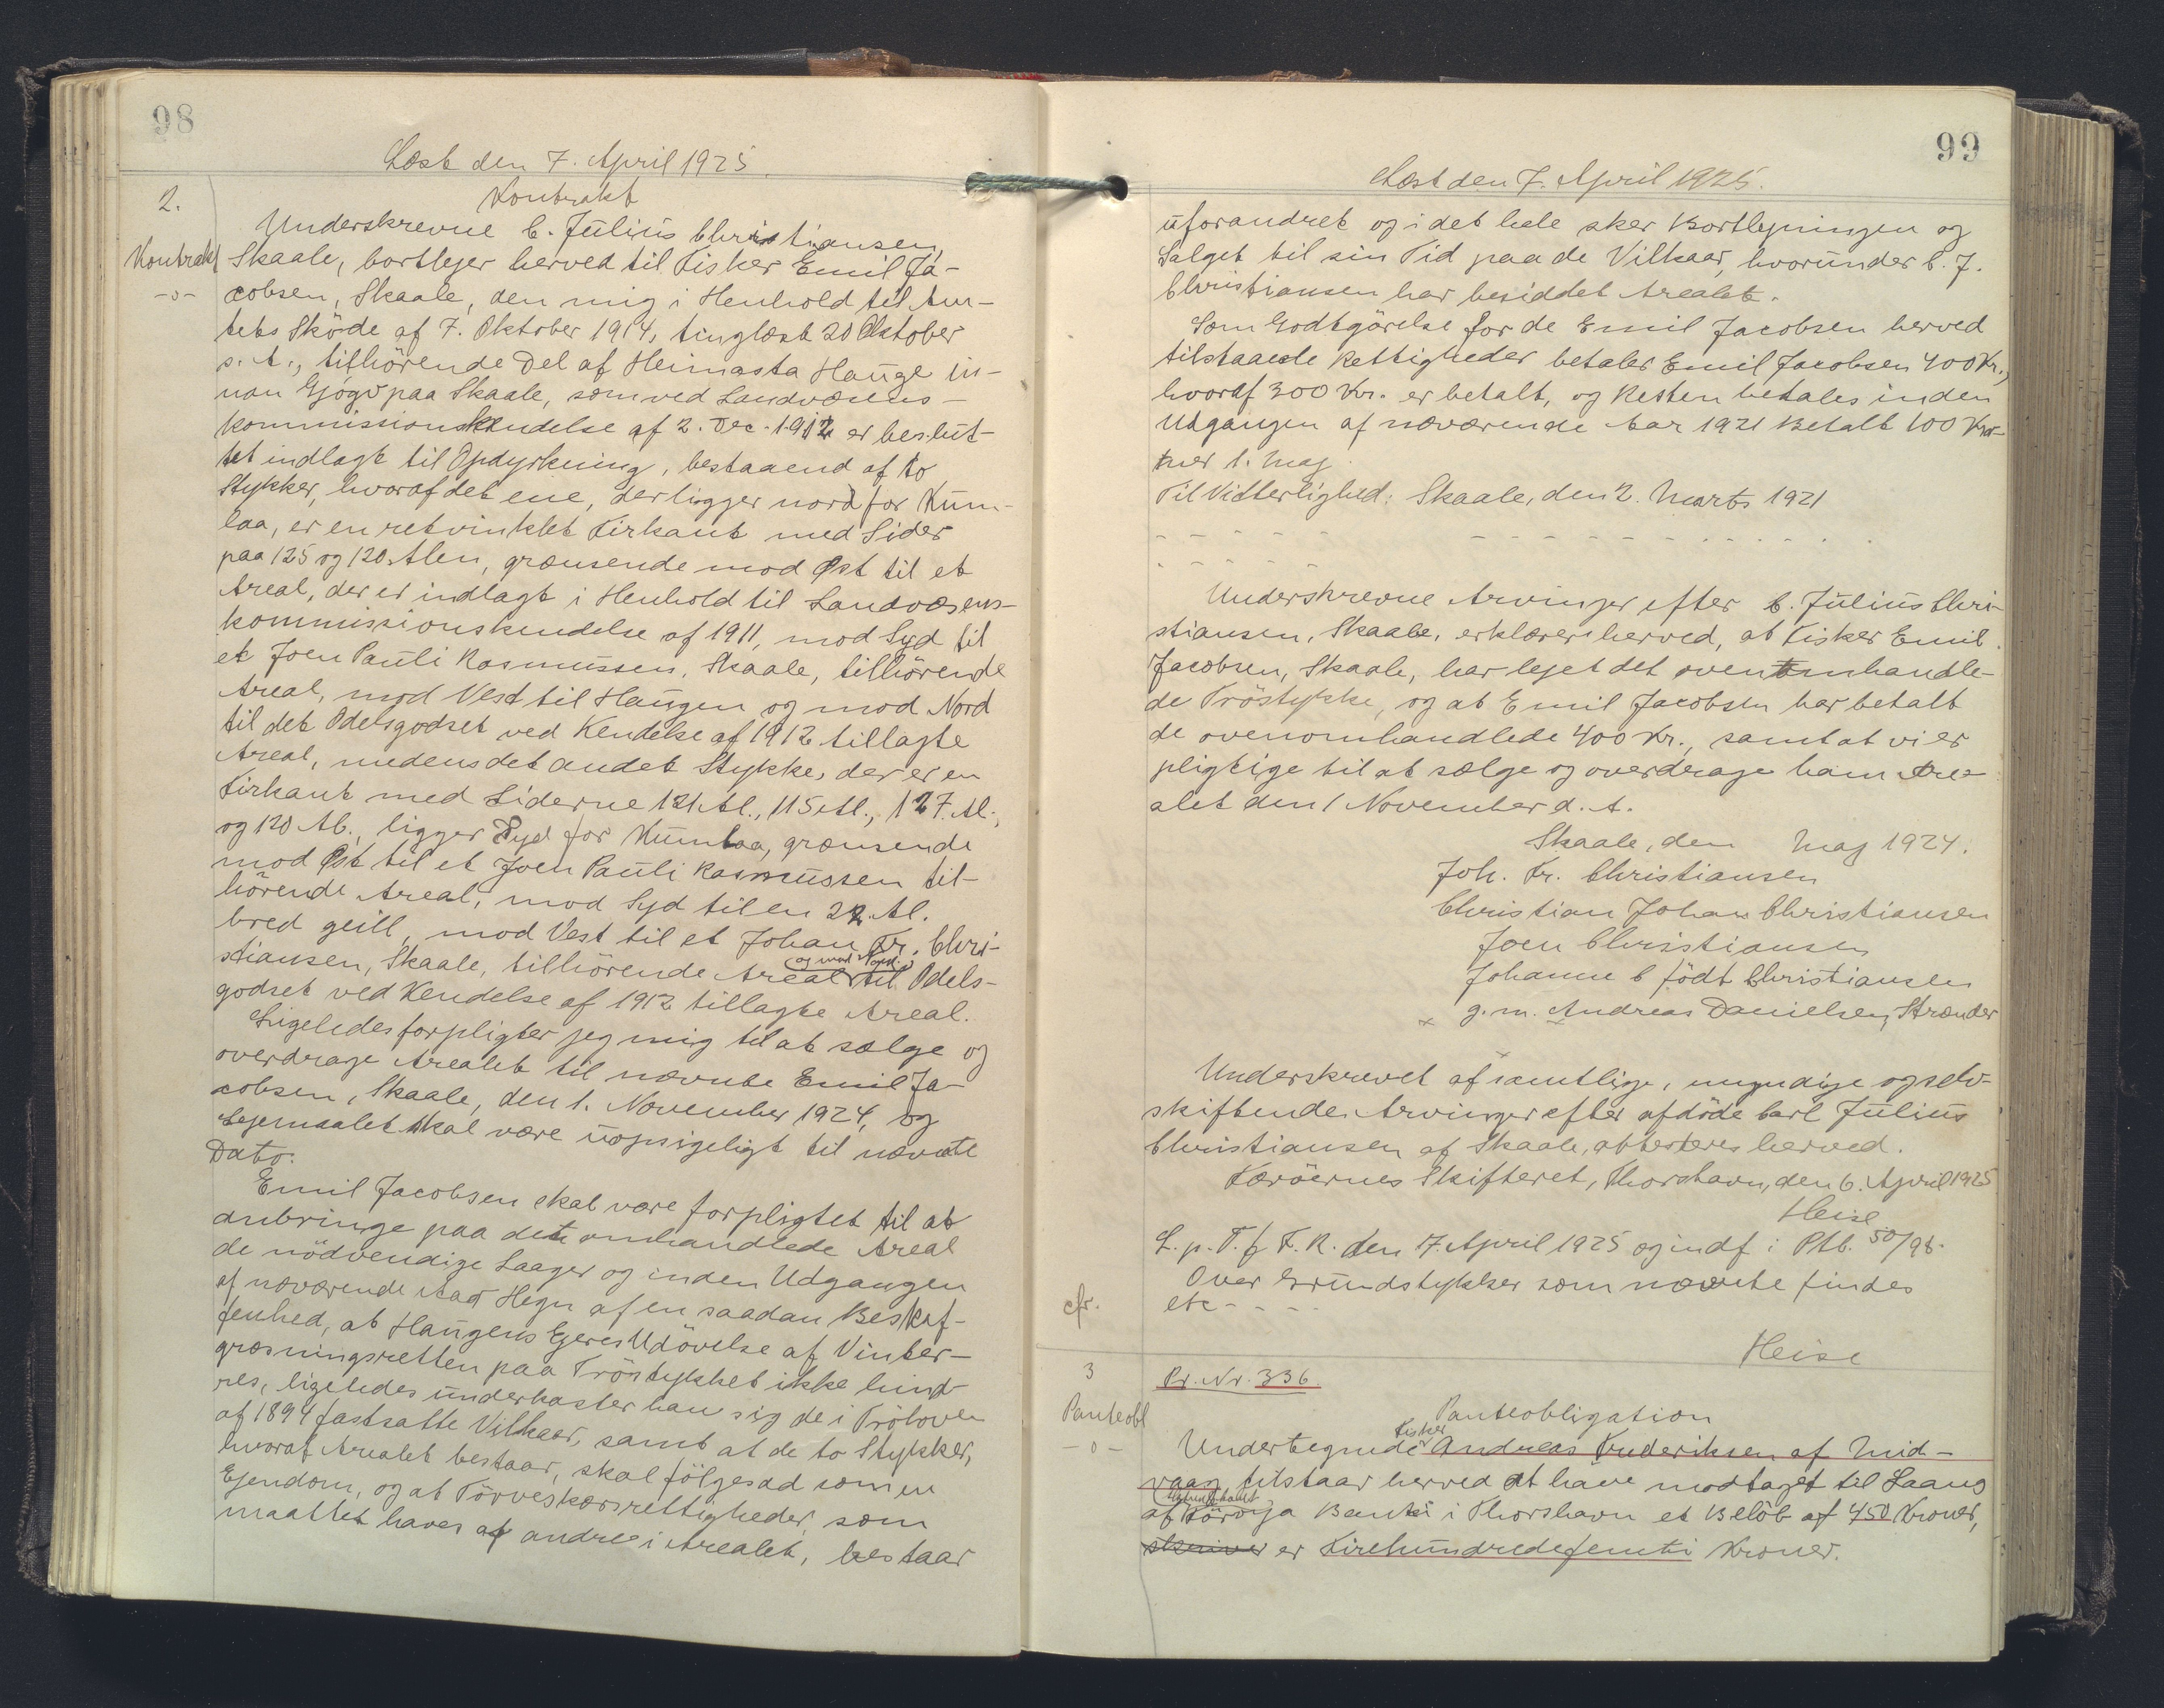 98
Læst den 7. April 1925.
2.
Kontrakt
Kontrakt
-o-
Underskrevne C. Julius Christiansen,
Skaale, bortlejer herved til Fisker Emil Ja-
cobsen, Skaale, den mig i Henhold til Am-
tets Sköde af 7. Oktober 1914, tinglæst 20 Oktober
s. A., tilhörende Del af Heimasta Hauge in-
nan Gjógv paa Skaale, som ved Landvæsens-
kommissionskendelse af 2. Dec. 1912 er beslut-
tet indlagt til Opdyrkning, bestaaend af to
Stykker, hvoraf det ene, der ligger nord for Kum-
laa, er en retvinklet Firkant med Sider
paa 125 og 120 Alen, grænsende mod Øst til et
Areal, der er indlagt i Henhold til Landvæsens-
kommissionskendelse af 1911, mod Syd til
et Joen Pauli Rasmussen, Skaale, tilhörende
Areal, mod Vest til Haugen og mod Nord
til det Odelsgodset ved Kendelse af 1912 tillagte
Areal, medens det andet Stykke, der er en
Firkant med Siderne 121 Al., 115 Al., 127 Al.,
og 120 Al., ligger Syd for Kumlaa, grænsende
mod Øst til et Joen Pauli Rasmussen til-
hörende Areal, mod Syd til en 22 Al.
bred geill, mod Vest til et Johan Fr. Chri-
stiansen, Skaale, tilhörende Areal og mod Nord til Odels-
godset ved Kendelse af 1912 tillagte Areal.
Ligeledes forpligter jeg mig til at sælge og
overdrage Arealet til nævnte Emil Ja-
cobsen, Skaale, den 1. November 1924, og
Lejemaalet skal være uopsigeligt til nævnte
Dato.
Emil Jacobsen skal være forpligtet til at
anbringe paa det omhandlede Areal
de nödvendige Laager og inden Udgangen
af nærværende Aar Hegn af en saadan Beskaf-
fenhed, at Haugens Ejeres Udövelse af Vinter-
græsningsretten paa Tröstykket ikke hind-
res, ligeledes underkaster han sig de i Tröloven
af 1894 fastsatte Vilkaar, samt at de to Stykker,
hvoraf Arealet bestaar, skal fölges ad som en
Ejendom, og at Törveskærsrettigheder, som
maattet haves af andre i Arealet, bestaar
99
Læst den 7. April 1925.
uforandret og i det hele sker Bortlejningen og
Salget til sin Tid paa de Vilkaar, hvorunder C. J.
Christiansen har besiddet Arealet.
Som Godtgörelse for de Emil Jacobsen herved
tilstaaede Rettigheder betaler Emil Jacobsen 400 Kr.,
hvoraf 300 Kr. er betalt, og Resten betales inden
Udgangen af næværende Aar 1921 Betalt 100 Kro-
ner 1. Maj.
Til Vitterlighed: Skaale, den 2. Marts 1921
Underskrevne Arvinger efter C. Julius Chri-
stiansen, Skaale, erklærer herved, at Fisker Emil
Jacobsen, Skaale, har lejet det ovenomhandle-
de Tröstykke, og at Emil Jacobsen har betalt
de ovenomhandlede 400 Kr., samt at vi er
pligtige til at sælge og overdrage ham Are-
alet den 1 November d. A.
Skaale, den Maj 1924.
Joh. Fr. Christiansen
Christian Johan Christiansen
Joen Christiansen
Johanne C födt Christiansen
g. m. Andreas Danielsen, Strænder
Underskrevet af samtlige, myndige og selv-
skiftende Arvinger efter afdöde Carl Julius
Christiansen af Skaale, attesteres herved.
Færöernes Skifteret, Thorshavn, den 6. April 1925
Heise
L. p. T. f. F. R. den 7. April 1925 og indf i Ptb. 50/98.
cfr.
Over Grundstykker som nævnte findes
etc - - - -
Heise
3
Pr. Nr. 336.
Panteobl
-o-
Panteobligation
Undertegnede Fisker Andreas Frederiksen af Mid-
vaag tilstaar herved at have modtaget til Laans
af Föroya Banki i Thorshavn et Belöb af 450 Kroner,
skriver er Firehundredefemti Kroner.